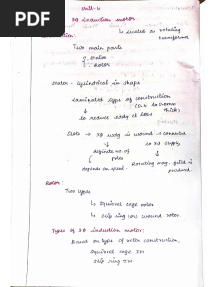 PDF
Unit-4
3φ induction motor
↳ called as rotating
transformer
Two main parts
1. stator
2. rotor
Stator - cylindrical in shape
laminated type of construction
(0.4 to 0.5mm
thick)
↓
to reduce eddy ct loss
Slots → 3φ wdg is wound → connected
↓
to 3φ supply
definite no. of
poles
↓
Rotating mag. field is
produced
depends on speed.
Rotor:
Two types
↳ Squirrel cage rotor
↳ Slip ring (or) wound rotor.
Types of 3φ induction motor:
Based on type of rotor construction,
Squirrel cage IM
Slip ring IM